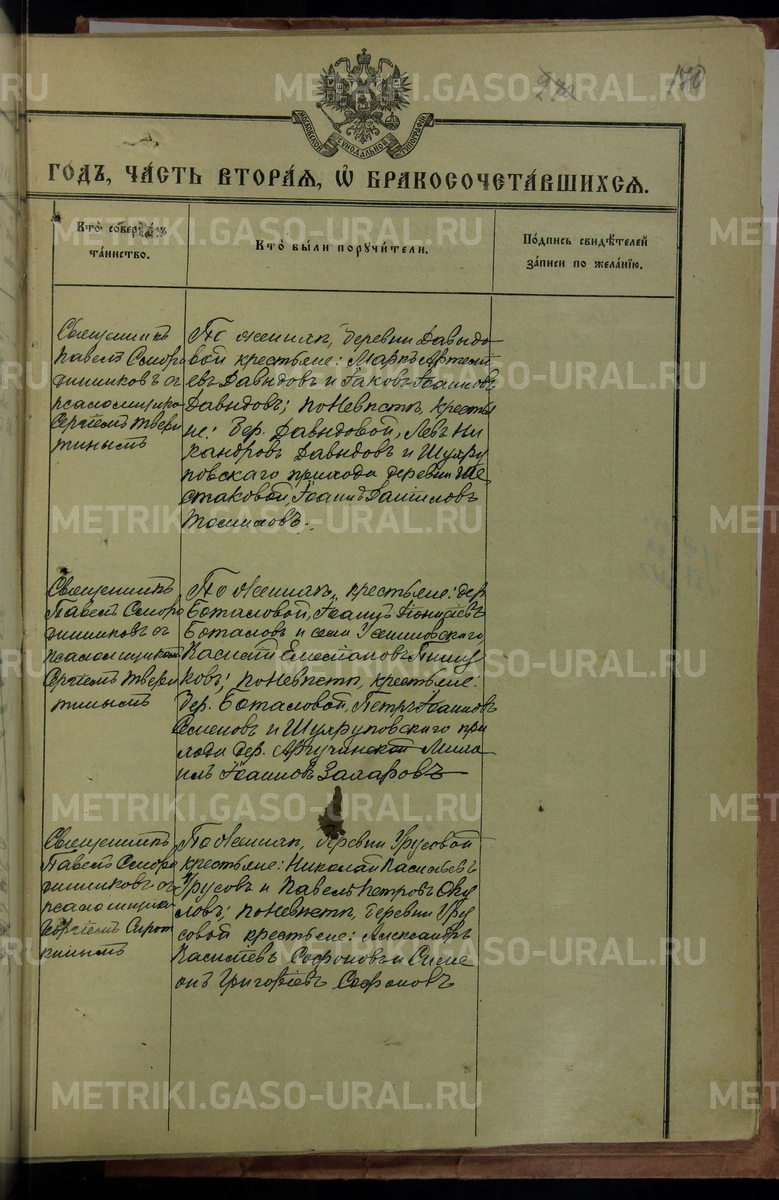 170
МОСКОВСКОЙ СѴНОДАЛЬНОЙ ТИПОГРАФІИ
ГОДЪ, ЧА́СТЬ ВТОРА́Я, Ѡ БРАКОСОЧЕТА́ВШИХСЯ.
Кто̀ соверша́лъ
та́инство.
Кто̀ бы́ли поручи́тели.
По́дпись свидѣ́телей
за́писи по жела́нію.
Священникъ
Павелъ Смород
инниковъ съ
псаломщико
Сергіемъ Твери
тинымъ
По женихѣ, деревни Давыдо
вой крестьяне: Маркъ Артемі
евъ Давыдовъ и Іаковъ Іоанновъ
Давыдовъ; по невѣстѣ, крестья
не: дер. Давыдовой, Левъ Ни
кандровъ Давыдовъ и Шуяру
повскаго прихода деревни Ше
стаковой, Іоаннъ Даніиловъ
Священникъ
Павелъ Смород
инниковъ съ
псаломщикомъ
Сергіемъ Твери
тинымъ
По женихѣ, крестьяне: дер.
Боталовой, Іоаннъ Діонисіевъ
Боталовъ и села
Василій
ковъ; по невѣстѣ, крестьяне:
дер. Боталовой, Петръ Іоанновъ
Семеновъ и Шуяруповскаго при
хода дер. Миха
илъ Іоанновъ Захаровъ
Священникъ
Павелъ Смород
инниковъ съ
псаломщикомъ
Георгіемъ Сирот
кинымъ
По женихѣ, деревни Урусовой
крестьяне: Николай Васильевъ
Урусовъ и Павелъ Петровъ Оку
ловъ; по невѣстѣ, деревни Уру
совой крестьяне: Александръ
Василіевъ Софоновъ и Симе
онъ Григоріевъ Софоновъ
METRIKI.GASO-URAL.RU